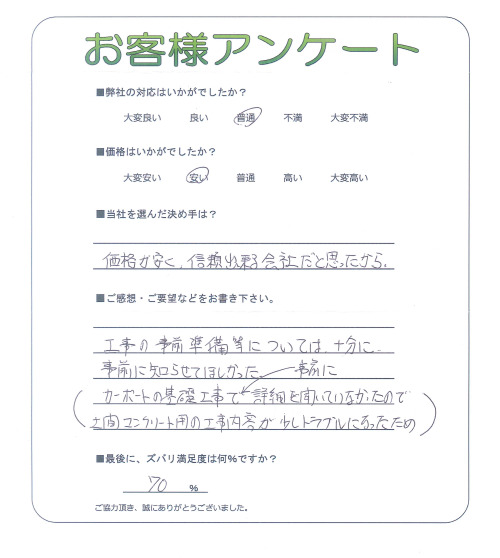 お客様アンケート
■弊社の対応はいかがでしたか？
大変良い 良い 普通 不満 大変不満
■価格はいかがでしたか？
大変安い 安い 普通 高い 大変高い
■当社を選んだ決め手は？
価格が安く、信頼出来る会社だと思ったから。
■ご感想・ご要望などをお書き下さい。
工事の事前準備等については、十分に
事前に知らせてほしかった 事前に
(カーポートの基礎工事で詳細を聞いていなかったので
土間コンクリート用の工事内容が少しトラブルになったため)
■最後に、ズバリ満足度は何%ですか？
70 %
ご協力頂き、誠にありがとうございました。